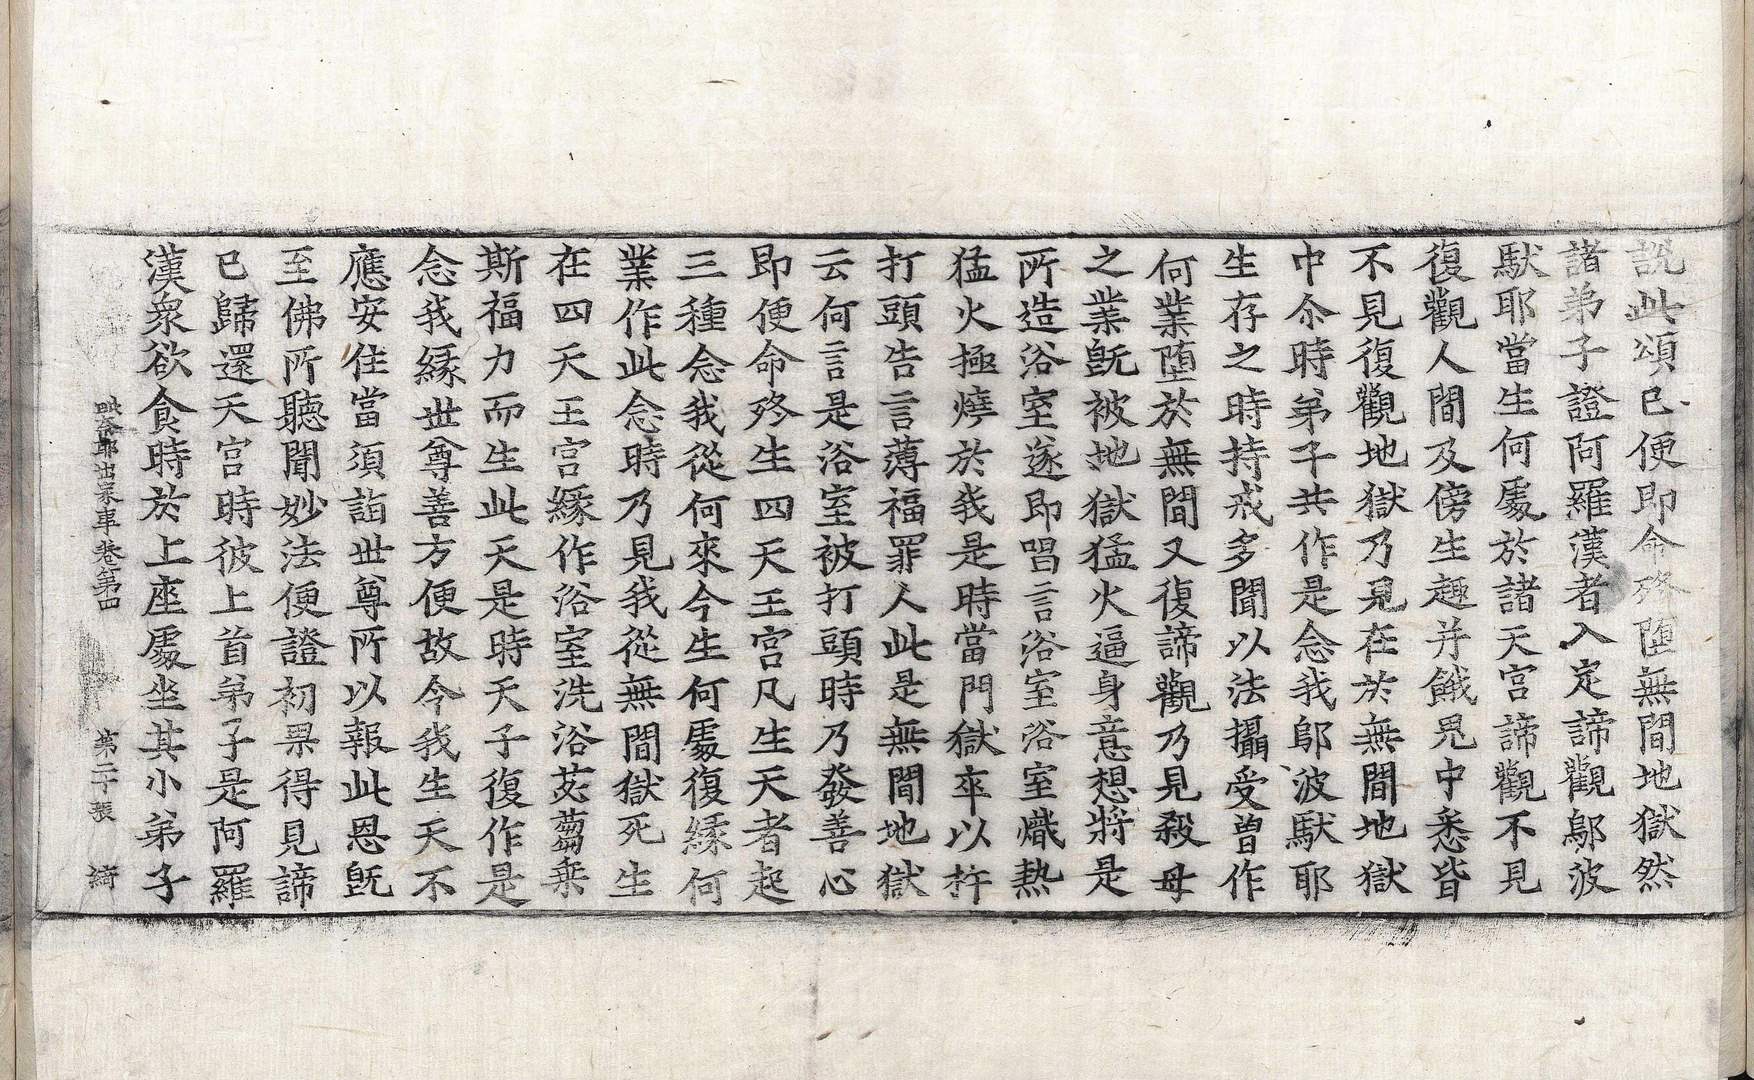 說此頌已便即命終堕無間地獄然
諸弟子證阿羅漢者入定諦觀鄔波
馱耶當生何處於諸天宮諦觀不見
復觀人間及傍生趣并餓鬼中悉皆
不見復觀地獄乃見在於無間地獄
中尒時弟子共作是念我鄔波馱耶
生存之時持戒多聞以法攝受曾作
何業堕於無間又復諦觀乃見殺母
之業旣被地獄猛火逼身意想將是
所造浴室遂即唱言浴室浴室熾熱
猛火極燒於我是時當門獄卒以杵
打頭告言薄福罪人此是無間地獄
云何言是浴室被打頭時乃發善心
即便命終生四天王宮凡生天者起
三種念我從何來今生何處復緣何
業作此念時乃見我從無間獄死生
在四天王宮緣作浴室洗浴苾蒭乗
斯福力而生此天是時天子復作是
念我緣世尊善方便故今我生天不
應安住當須詣世尊所以報此恩旣
至佛所聽聞妙法便證初果得見諦
已歸還天宮時彼上首弟子是阿羅
漢衆欲食時於上座處坐其小弟子
毗奈耶出家事卷第四 第二十張 綺